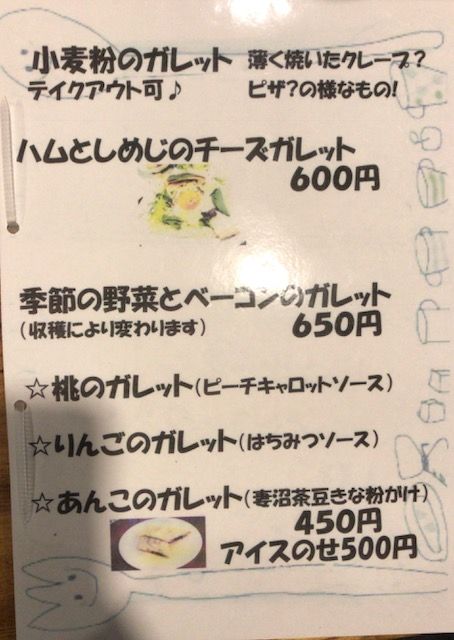 小麦粉のガレット 薄く焼いたクレープ?
テイクアウト可♪ ピザ?の様なもの!
ハムとしめじのチーズガレット
600円
季節の野菜とベーコンのガレット
(収穫により変わります) 650円
☆桃のガレット(ピーチキャロットソース)
☆りんごのガレット(はちみつソース)
☆あんこのガレット(妻沼茶豆きな粉がけ)
450円
アイスのせ500円